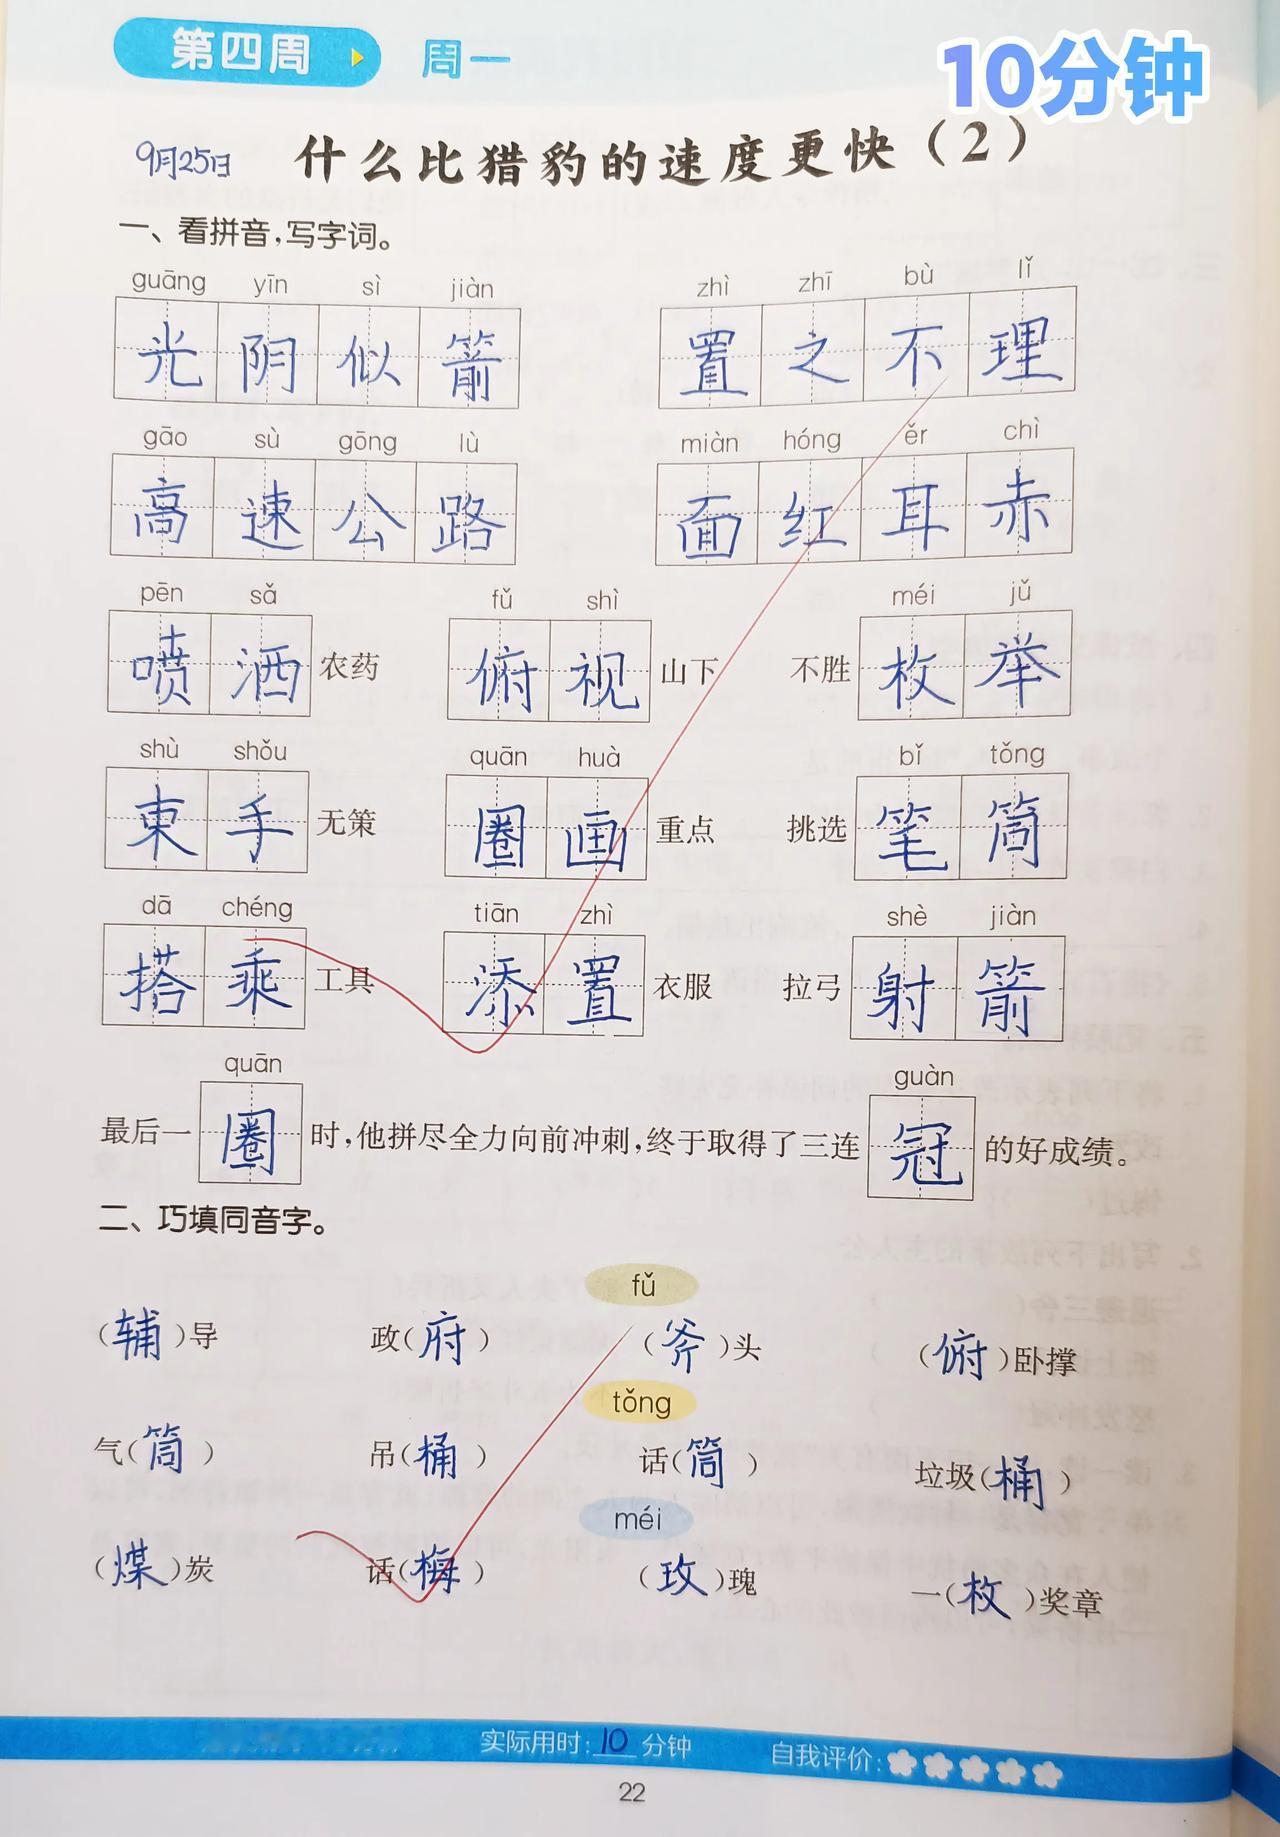 第四周 周一 10分钟
9月25日 什么比猎豹的速度更快（2）
一、看拼音，写字词。
guāng yīn sì jiàn zhì zhī bù lǐ
光阴似箭 置之不理
gāo sù gōng lù miàn hóng ěr chì
高速公路 面红耳赤
pēn sǎ fǔ shì méi jǔ
喷洒农药 俯视山下 不胜枚举
shù shǒu quān huà bǐ tǒng
束手无策 圈画重点 挑选笔筒
dā chéng tiān zhì shè jiàn
搭乘工具 添置衣服 拉弓射箭
quān guàn
最后一圈时，他拼尽全力向前冲刺，终于取得了三连冠的好成绩。
二、巧填同音字。
fǔ
（辅）导 政（府） （斧）头 （俯）卧撑
tǒng
气（筒） 吊（桶） 话（筒） 垃圾（桶）
méi
（煤）炭 话（梅） （玫）瑰 一（枚）奖章
实际用时：10分钟 自我评价：
22